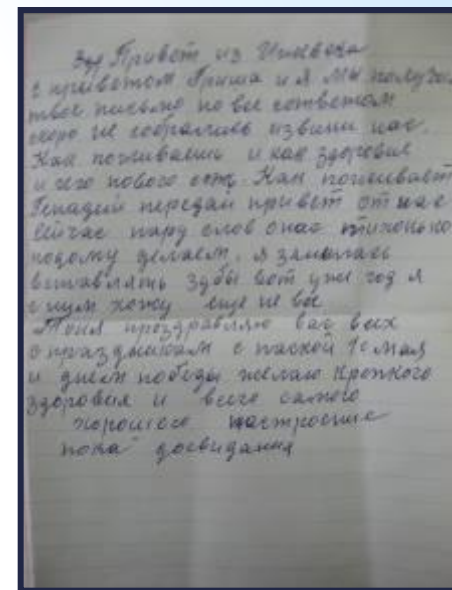 Зд Привет из Ижевска
с приветом Гриша и я мы получи
твое письмо но все сответом
скоро не собрались извени нас.
Как поживаешь и как здоровие
и чего нового есть. Как поживает
Генадий передай привет от нас
Сейчас пару слов онас потихоньку
подому делаем. я занялась
вставлять зубы вот уже год я
с ним хожу еще не все
Тоня проздравляю вас всех
с праздником с паской 1е мая
и днем победы желаю кропкого
здоровия и всего самого
хорошего настроение
пока досвидания